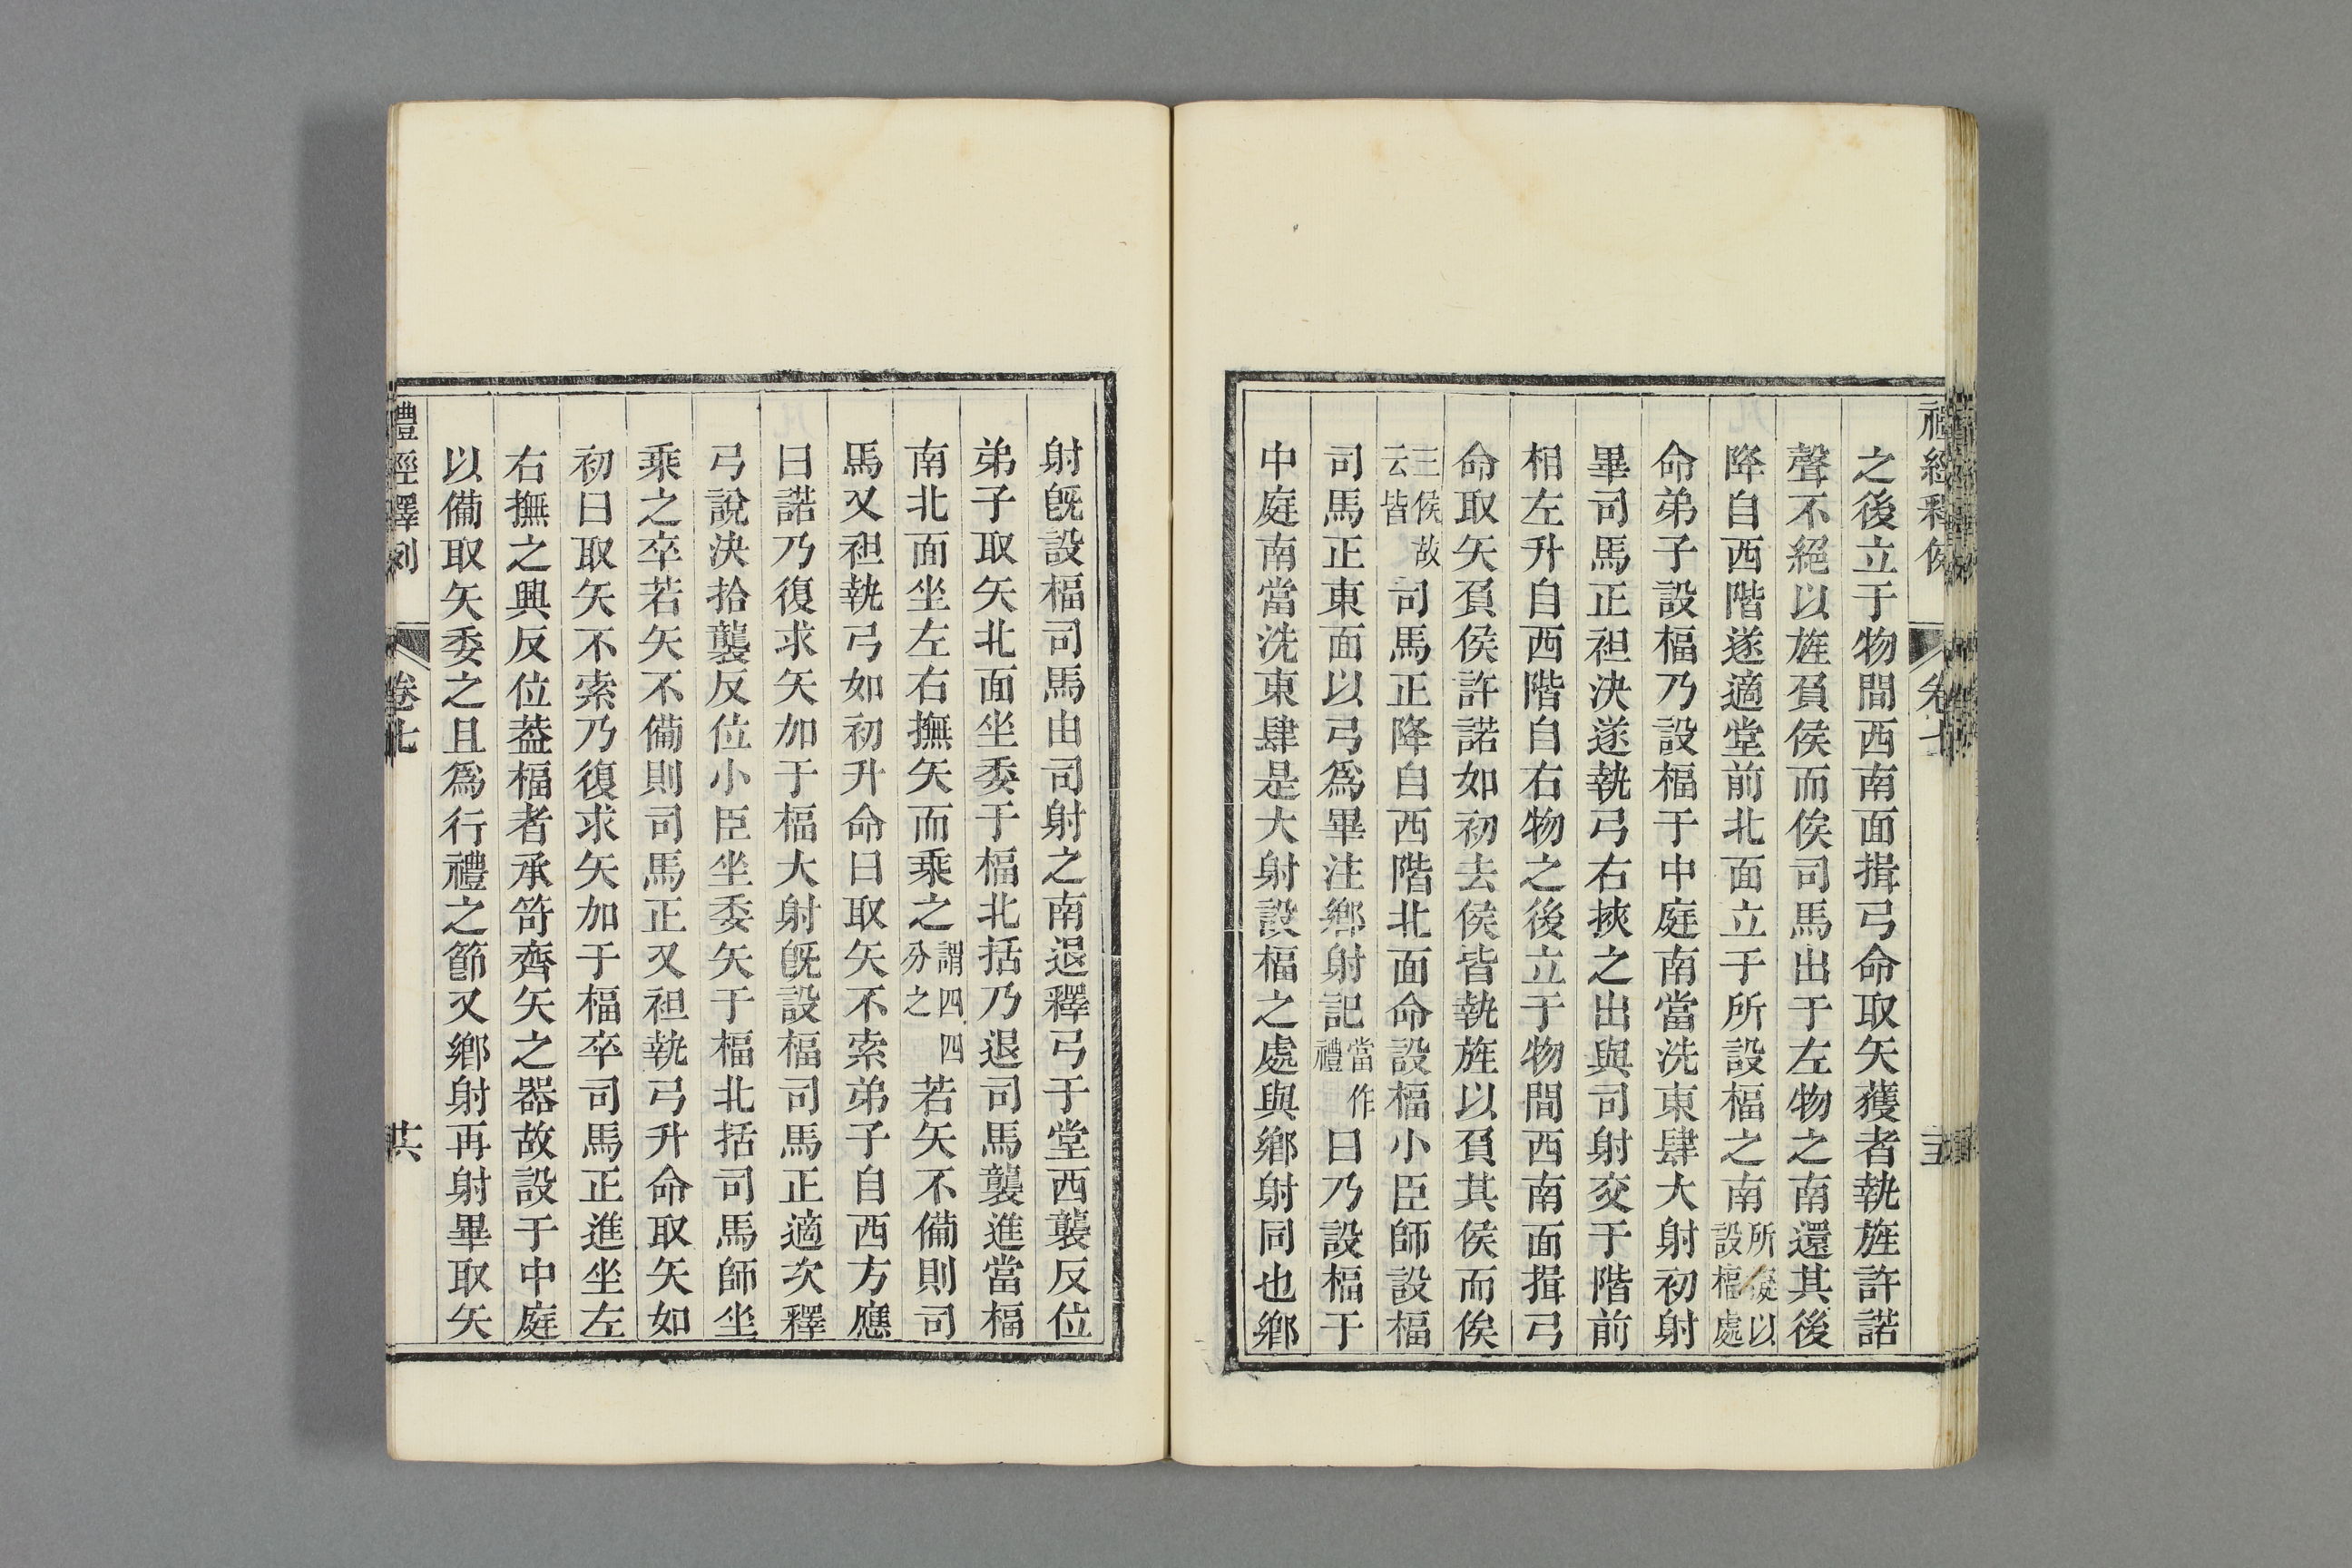 禮經釋例 卷七
之後立于物間西南面揖弓命取矢獲者執旌許諾
聲不絕以旌負侯而俟司馬出于左物之南還其後
降自西階遂適堂前北面立于所設楅之南所以設楅處
命弟子設楅乃設楅于中庭南當洗東肆大射初射
畢司馬正袒決遂執弓右挾之出與司射交于階前
相左升自西階自右物之後立于物間西南面揖弓
命取矢負侯許諾如初去侯皆執旌以負其侯而俟
三侯故云皆司馬正降自西階北面命設楅小臣師設楅
司馬正東面以弓爲畢注鄉射記當作禮曰乃設楅于
中庭南當洗東肆是大射設楅之處與鄉射同也鄉
射旣設楅司馬由司射之南退釋弓于堂西襲反位
弟子取矢北面坐委于楅北括乃退司馬襲進當楅
南北面坐左右撫矢而乘之謂四四分之若矢不備則司
馬又袒執弓如初升命曰取矢不索弟子自西方應
曰諾乃復求矢加于楅大射旣設楅司馬正適次釋
弓說決拾襲反位小臣坐委矢于楅北括司馬師坐
乘之卒若矢不備則司馬正又袒執弓升命取矢如
初曰取矢不索乃復求矢加于楅卒司馬正進坐左
右撫之興反位葢楅者承笴齊矢之器故設于中庭
以備取矢委之且爲行禮之節又鄉射再射畢取矢
禮經釋例 卷七 廿六